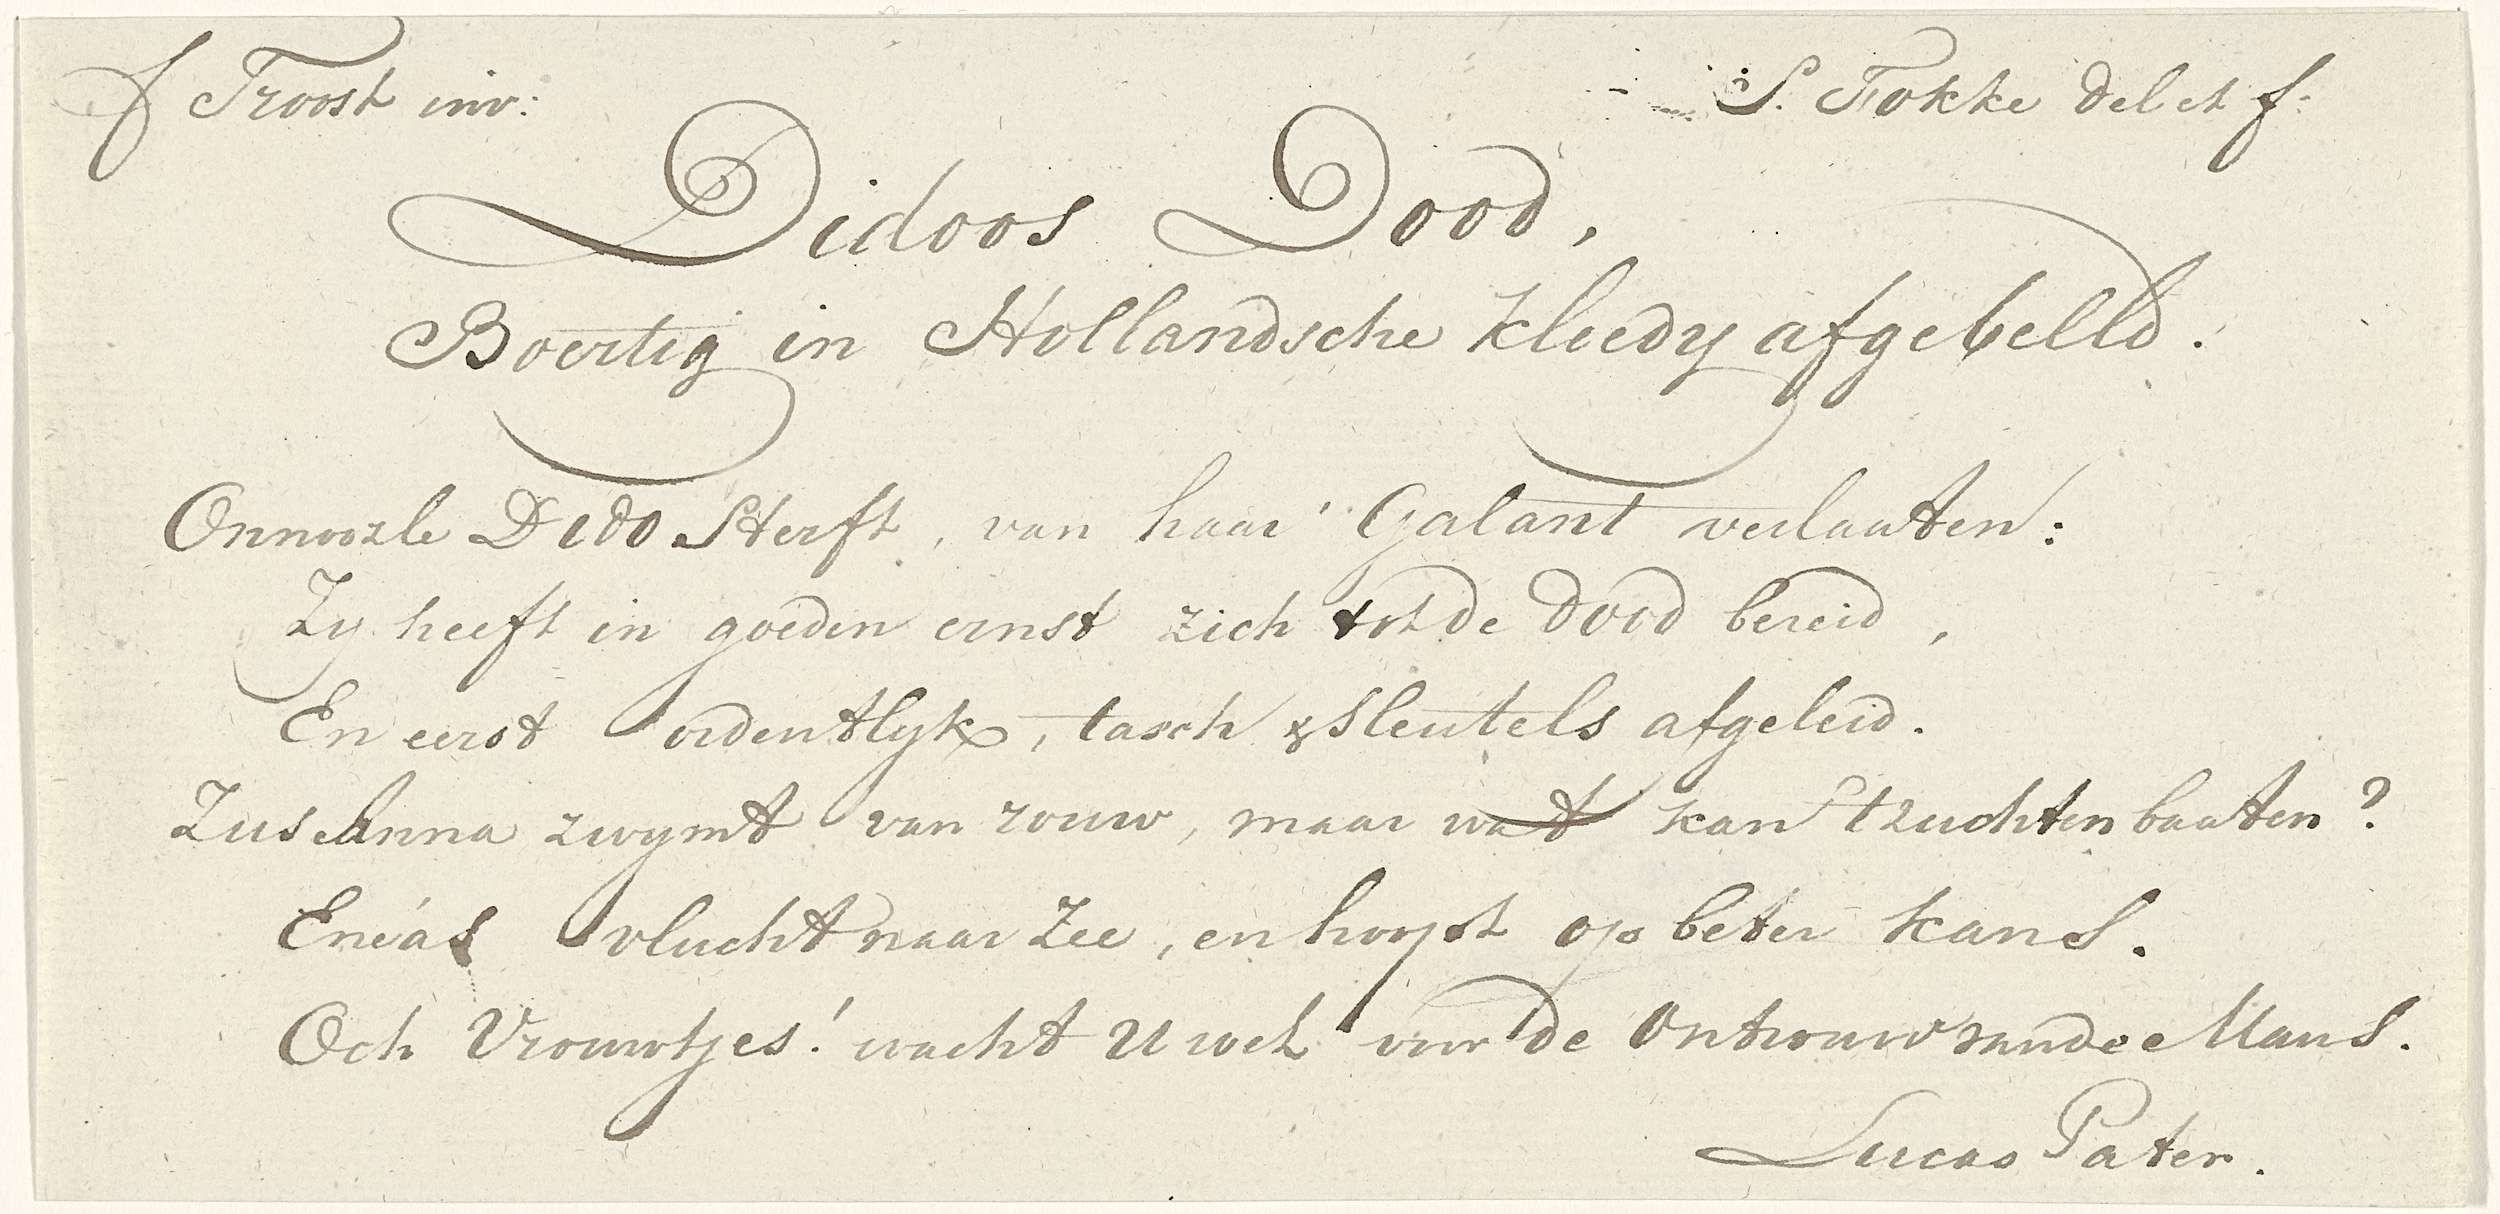 J Troost inv: S. Fokke del et f:
Didoos Dood,
Boertig in Hollandsche kleedy afgebeeld.
Onnoozle Dido Sterft, van haar' Galant verlaaten:
Zy heeft in goeden ernst zich tot de Dood bereid,
En eerst ordentlyk, tasch & Sleutels afgeleid.
Zus Anna zwymt van rouw, maar wat kan 't zuchten baaten?
Enéas vlucht naar Zee, en hoopt op beter kans.
Och Vrouwtjes! wacht U wel voor de Ontrouw van de Mans.
Lucas Pater.